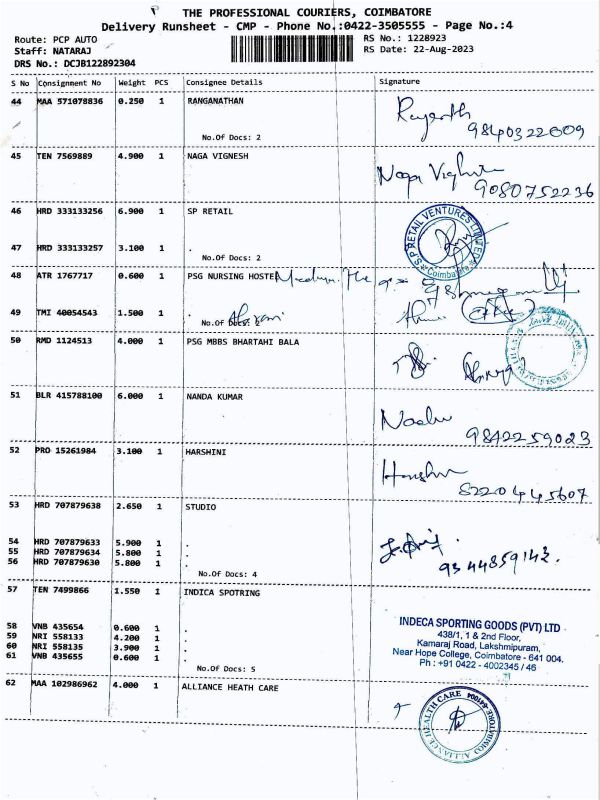 THE PROFESSIONAL COURIERS, COIMBATORE
Delivery Runsheet - CMP - Phone No.:0422-3505555 - Page No.:4
Route: PCP AUTO
Staff: NATARAJ
DRS No.: DCJB122892304
RS No.: 1228923
RS Date: 22-Aug-2023
S No Consignment No Weight PCS Consignee Details Signature
44 MAA 571078836 0.250 1 RANGANATHAN
No.Of Docs: 2
9840322009
45 TEN 7569889 4.900 1 NAGA VIGNESH
Naga Vighn
9080752236
46 HRD 333133256 6.900 1 SP RETAIL
S.P RETAIL VENTURES LIMITED
Coimbatore
47 HRD 333133257 3.100 1 .
No.Of Docs: 2
48 ATR 1767717 0.600 1 PSG NURSING HOSTE
49 TMI 40054543 1.500 1 .
No.Of Docs: 2
50 RMD 1124513 4.000 1 PSG MBBS BHARTAHI BALA
51 BLR 415788100 6.000 1 NANDA KUMAR
9842259023
52 PRO 15261984 3.100 1 HARSHINI
8220445607
53 HRD 707879638 2.650 1 STUDIO
54 HRD 707879633 5.900 1 .
55 HRD 707879634 5.800 1 .
56 HRD 707879630 5.800 1 .
No.Of Docs: 4
9344859142.
57 TEN 7499866 1.550 1 INDICA SPOTRING
58 VNB 435654 0.600 1 .
59 NRI 558133 4.200 1 .
60 NRI 558135 3.900 1 .
61 VNB 435655 0.600 1 .
No.Of Docs: 5
INDECA SPORTING GOODS (PVT) LTD
438/1, 1 & 2nd Floor,
Kamaraj Road, Lakshmipuram,
Near Hope College, Coimbatore - 641 004.
Ph : +91 0422 - 4002345 / 46
62 MAA 102986962 4.000 1 ALLIANCE HEATH CARE
ALLIANCE HEALTH CARE
COIMBATORE-641004